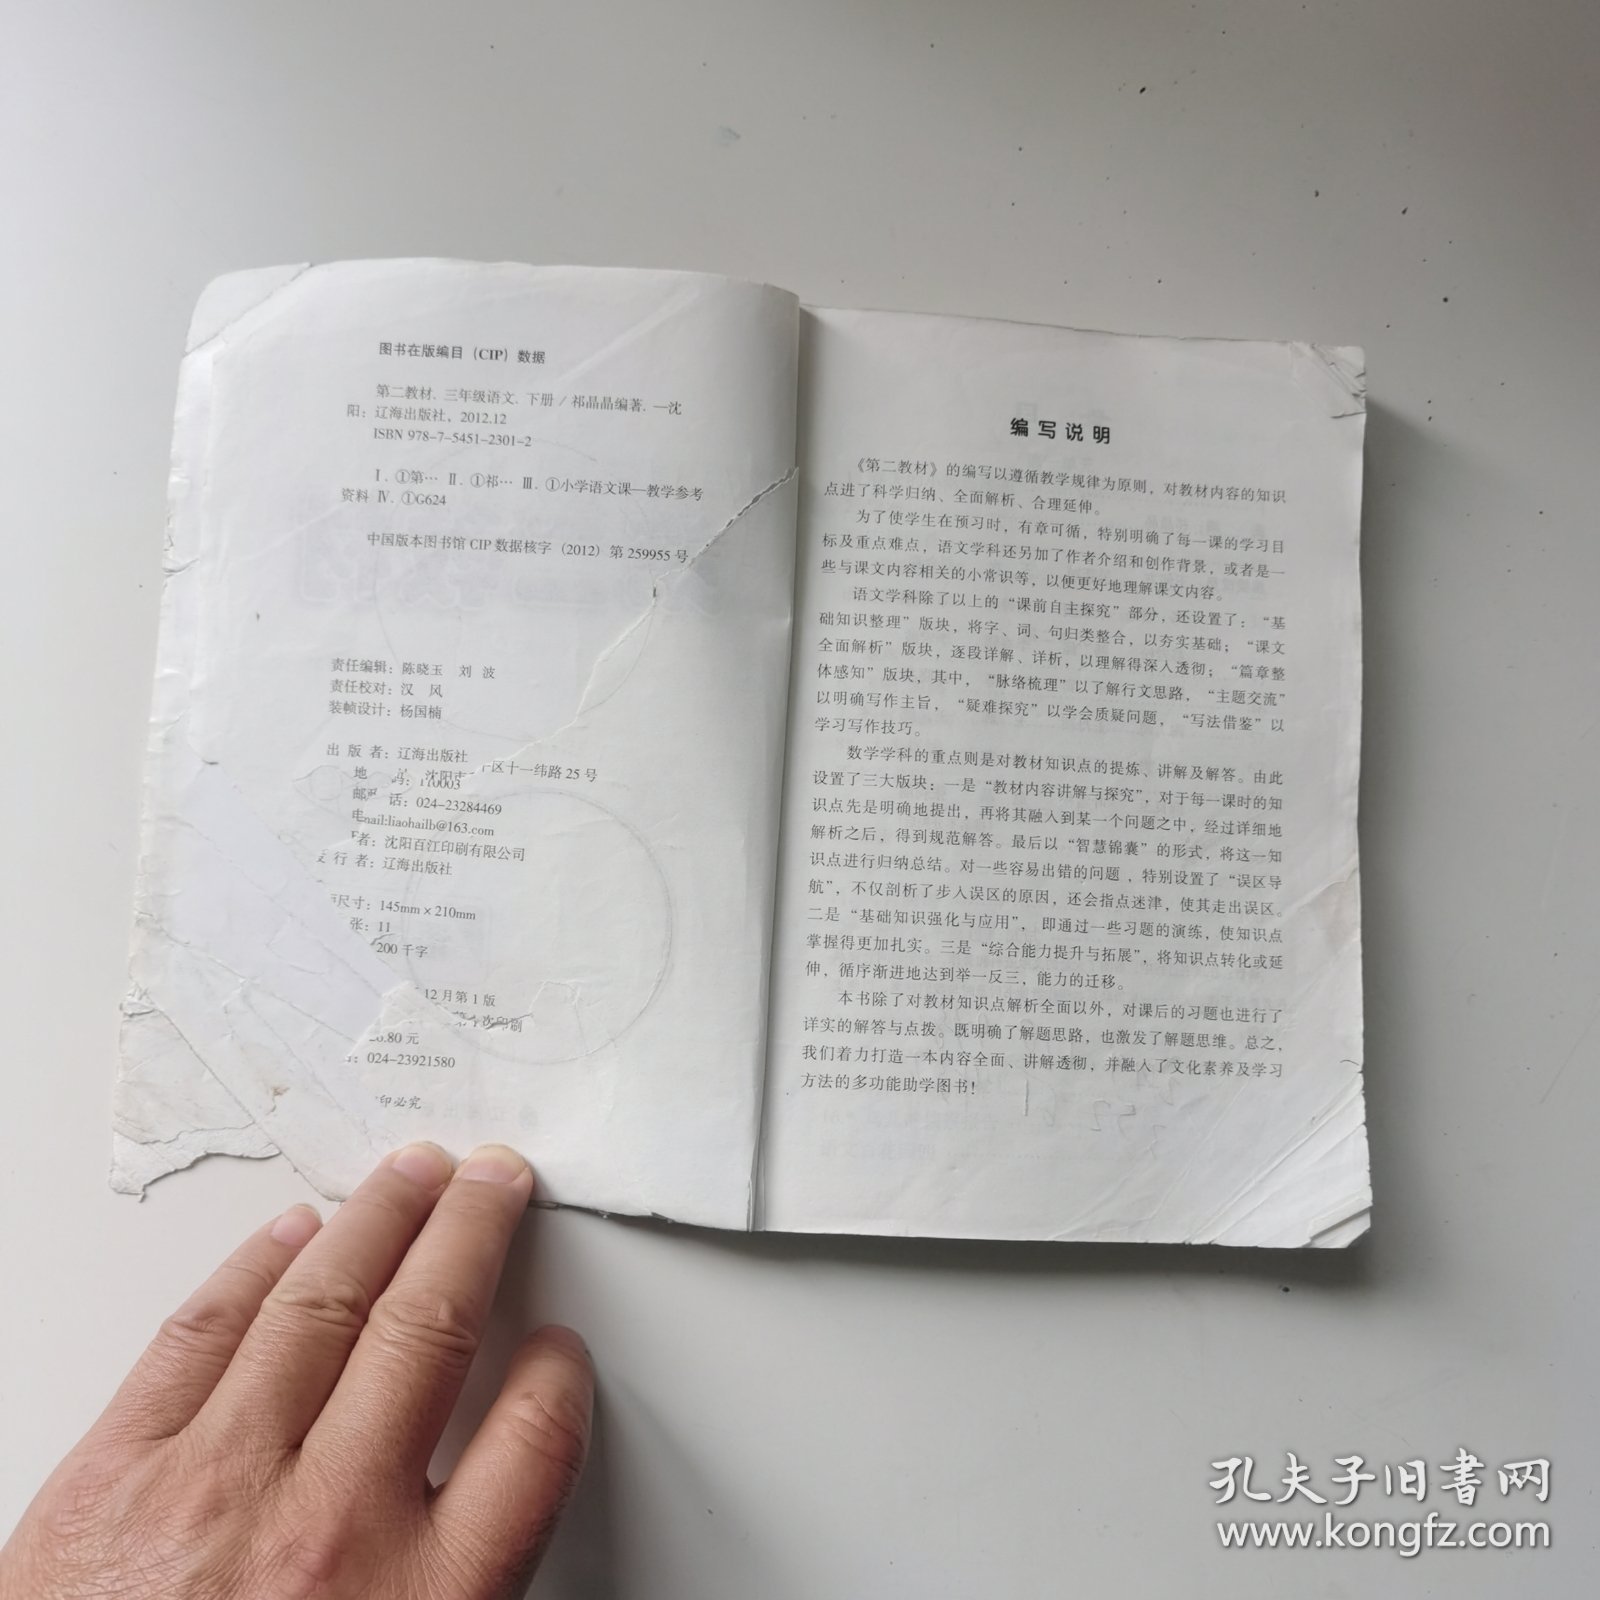 图书在版编目（CIP）数据
第二教材. 三年级语文. 下册 / 祁晶晶编著. —沈
阳：辽海出版社，2012.12
ISBN 978-7-5451-2301-2
Ⅰ. ①第… Ⅱ. ①祁… Ⅲ. ①小学语文课—教学参考
资料 Ⅳ. ①G624
中国版本图书馆 CIP 数据核字（2012）第 259955 号
责任编辑：陈晓玉 刘 波
责任校对：汉 风
装帧设计：杨国楠
出 版 者：辽海出版社
地 沈阳市 区十一纬路 25 号
邮 码：110003
电 话：024-23284469
mail:liaohailb@163.com
者：沈阳百江印刷有限公司
发 行 者：辽海出版社
尺寸：145mm×210mm
张：11
200 千字
12 月第 1 版
次印刷
.80 元
024-23921580
印必究
编写说明
《第二教材》的编写以遵循教学规律为原则，对教材内容的知识
点进了科学归纳、全面解析、合理延伸。
为了使学生在预习时，有章可循，特别明确了每一课的学习目
标及重点难点，语文学科还另加了作者介绍和创作背景，或者是一
些与课文内容相关的小常识等，以便更好地理解课文内容。
语文学科除了以上的“课前自主探究”部分，还设置了：“基
础知识整理”版块，将字、词、句归类整合，以夯实基础；“课文
全面解析”版块，逐段详解、详析，以理解得深入透彻；“篇章整
体感知”版块，其中，“脉络梳理”以了解行文思路，“主题交流”
以明确写作主旨，“疑难探究”以学会质疑问题，“写法借鉴”以
学习写作技巧。
数学学科的重点则是对教材知识点的提炼、讲解及解答。由此
设置了三大版块：一是“教材内容讲解与探究”，对于每一课时的知
识点先是明确地提出，再将其融入到某一个问题之中，经过详细地
解析之后，得到规范解答。最后以“智慧锦囊”的形式，将这一知
识点进行归纳总结。对一些容易出错的问题，特别设置了“误区导
航”，不仅剖析了步入误区的原因，还会指点迷津，使其走出误区。
二是“基础知识强化与应用”，即通过一些习题的演练，使知识点
掌握得更加扎实。三是“综合能力提升与拓展”，将知识点转化或延
伸，循序渐进地达到举一反三，能力的迁移。
本书除了对教材知识点解析全面以外，对课后的习题也进行了
详实的解答与点拨。既明确了解题思路，也激发了解题思维。总之，
我们着力打造一本内容全面、讲解透彻，并融入了文化素养及学习
方法的多功能助学图书！
孔夫子旧书网
www.kongfz.com